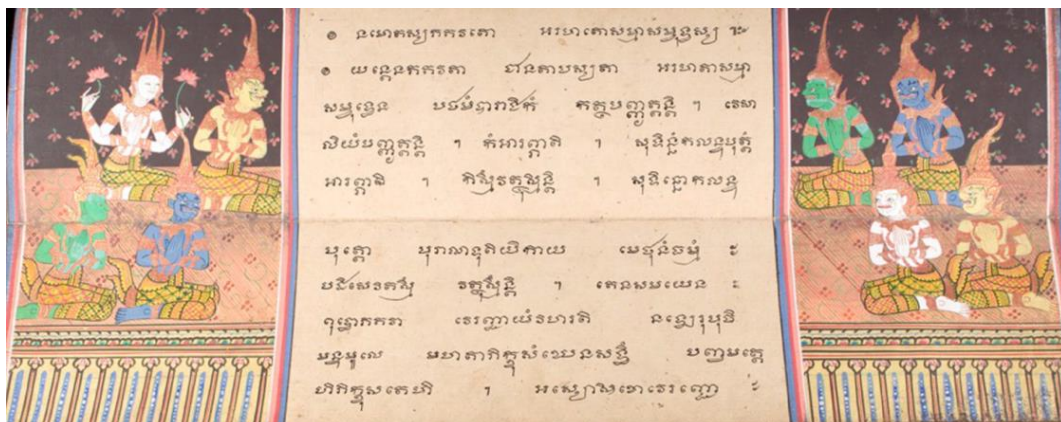 ๏ នមោតស្សភគវតោ អរហតោសម្មាសម្ពុទ្ធស្ស ៈ
๏ យន្តេនភគវតា ជានតាបស្សតា អរហតាសម្មា
សម្ពុទ្ធេន បឋមំបារាជិកំ កត្ថបញ្ញត្តន្តិ ។ វេសា
លិយំបញ្ញត្តន្តិ ។ កំអារព្ភាតិ ។ សុទិន្នំកលន្ទបុត្តំ
អារព្ភាតិ ។ កិស្មឹវត្ថុស្មិន្តិ ។ សុទិន្នោកលន្ទ
បុត្តោ បុរាណទុតិយិកាយ មេថុនំធម្មំ ៈ
បដិសេវតស្មឹ វត្ថុស្មិន្តិ ។ តេនសមយេន ៈ
ពុទ្ធោភគវា វេរញ្ជាយំវិហរតិ នឡេរុបុចិ
មន្ទមូលេ មហតាភិក្ខុសំឃេនសទ្ធឹ បញ្ចមត្តេ
ហិភិក្ខុសតេហិ ។ អស្សោសិខោវេរញ្ជោ ៈ